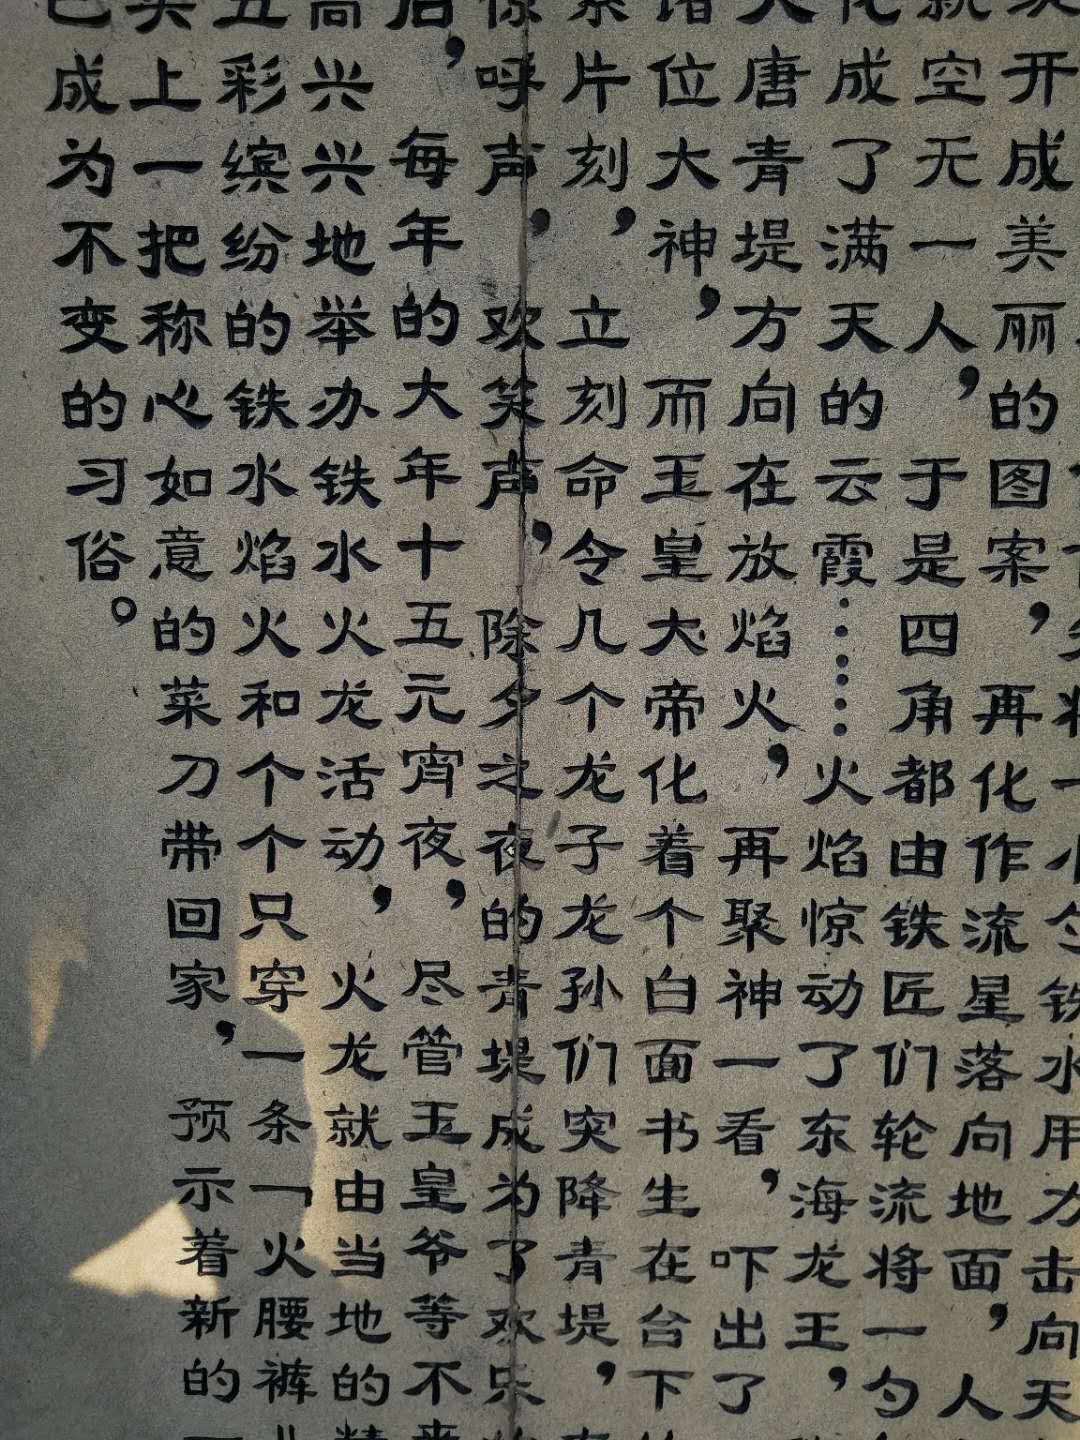 水用力击向天
开成美丽的图案，再化作流星落向地面，人
空无一人，于是四角都由铁匠们轮流将一勺
化成了满天的云霞……火焰惊动了东海龙王，
大唐青堤方向在放焰火，再聚神一看，吓出了
诸位大神，而玉皇大帝化着个白面书生在台下
片刻，立刻命令几个龙子龙孙们突降青堤，
惊呼声，欢笑声，除夕之夜的青堤成为了欢乐
后，每年的大年十五元宵夜，尽管玉皇爷等不来
高兴兴地举办铁水火龙活动，火龙就由当地的精
五彩缤纷的铁水焰火和个个只穿一条「火腰裤
卖上一把称心如意的菜刀带回家，预示着新的一
已成为不变的习俗。